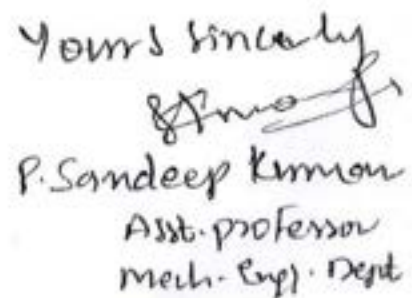 Yours sincerely
P. Sandeep Kumar
Asst. professor
Mech. Engg. Dept